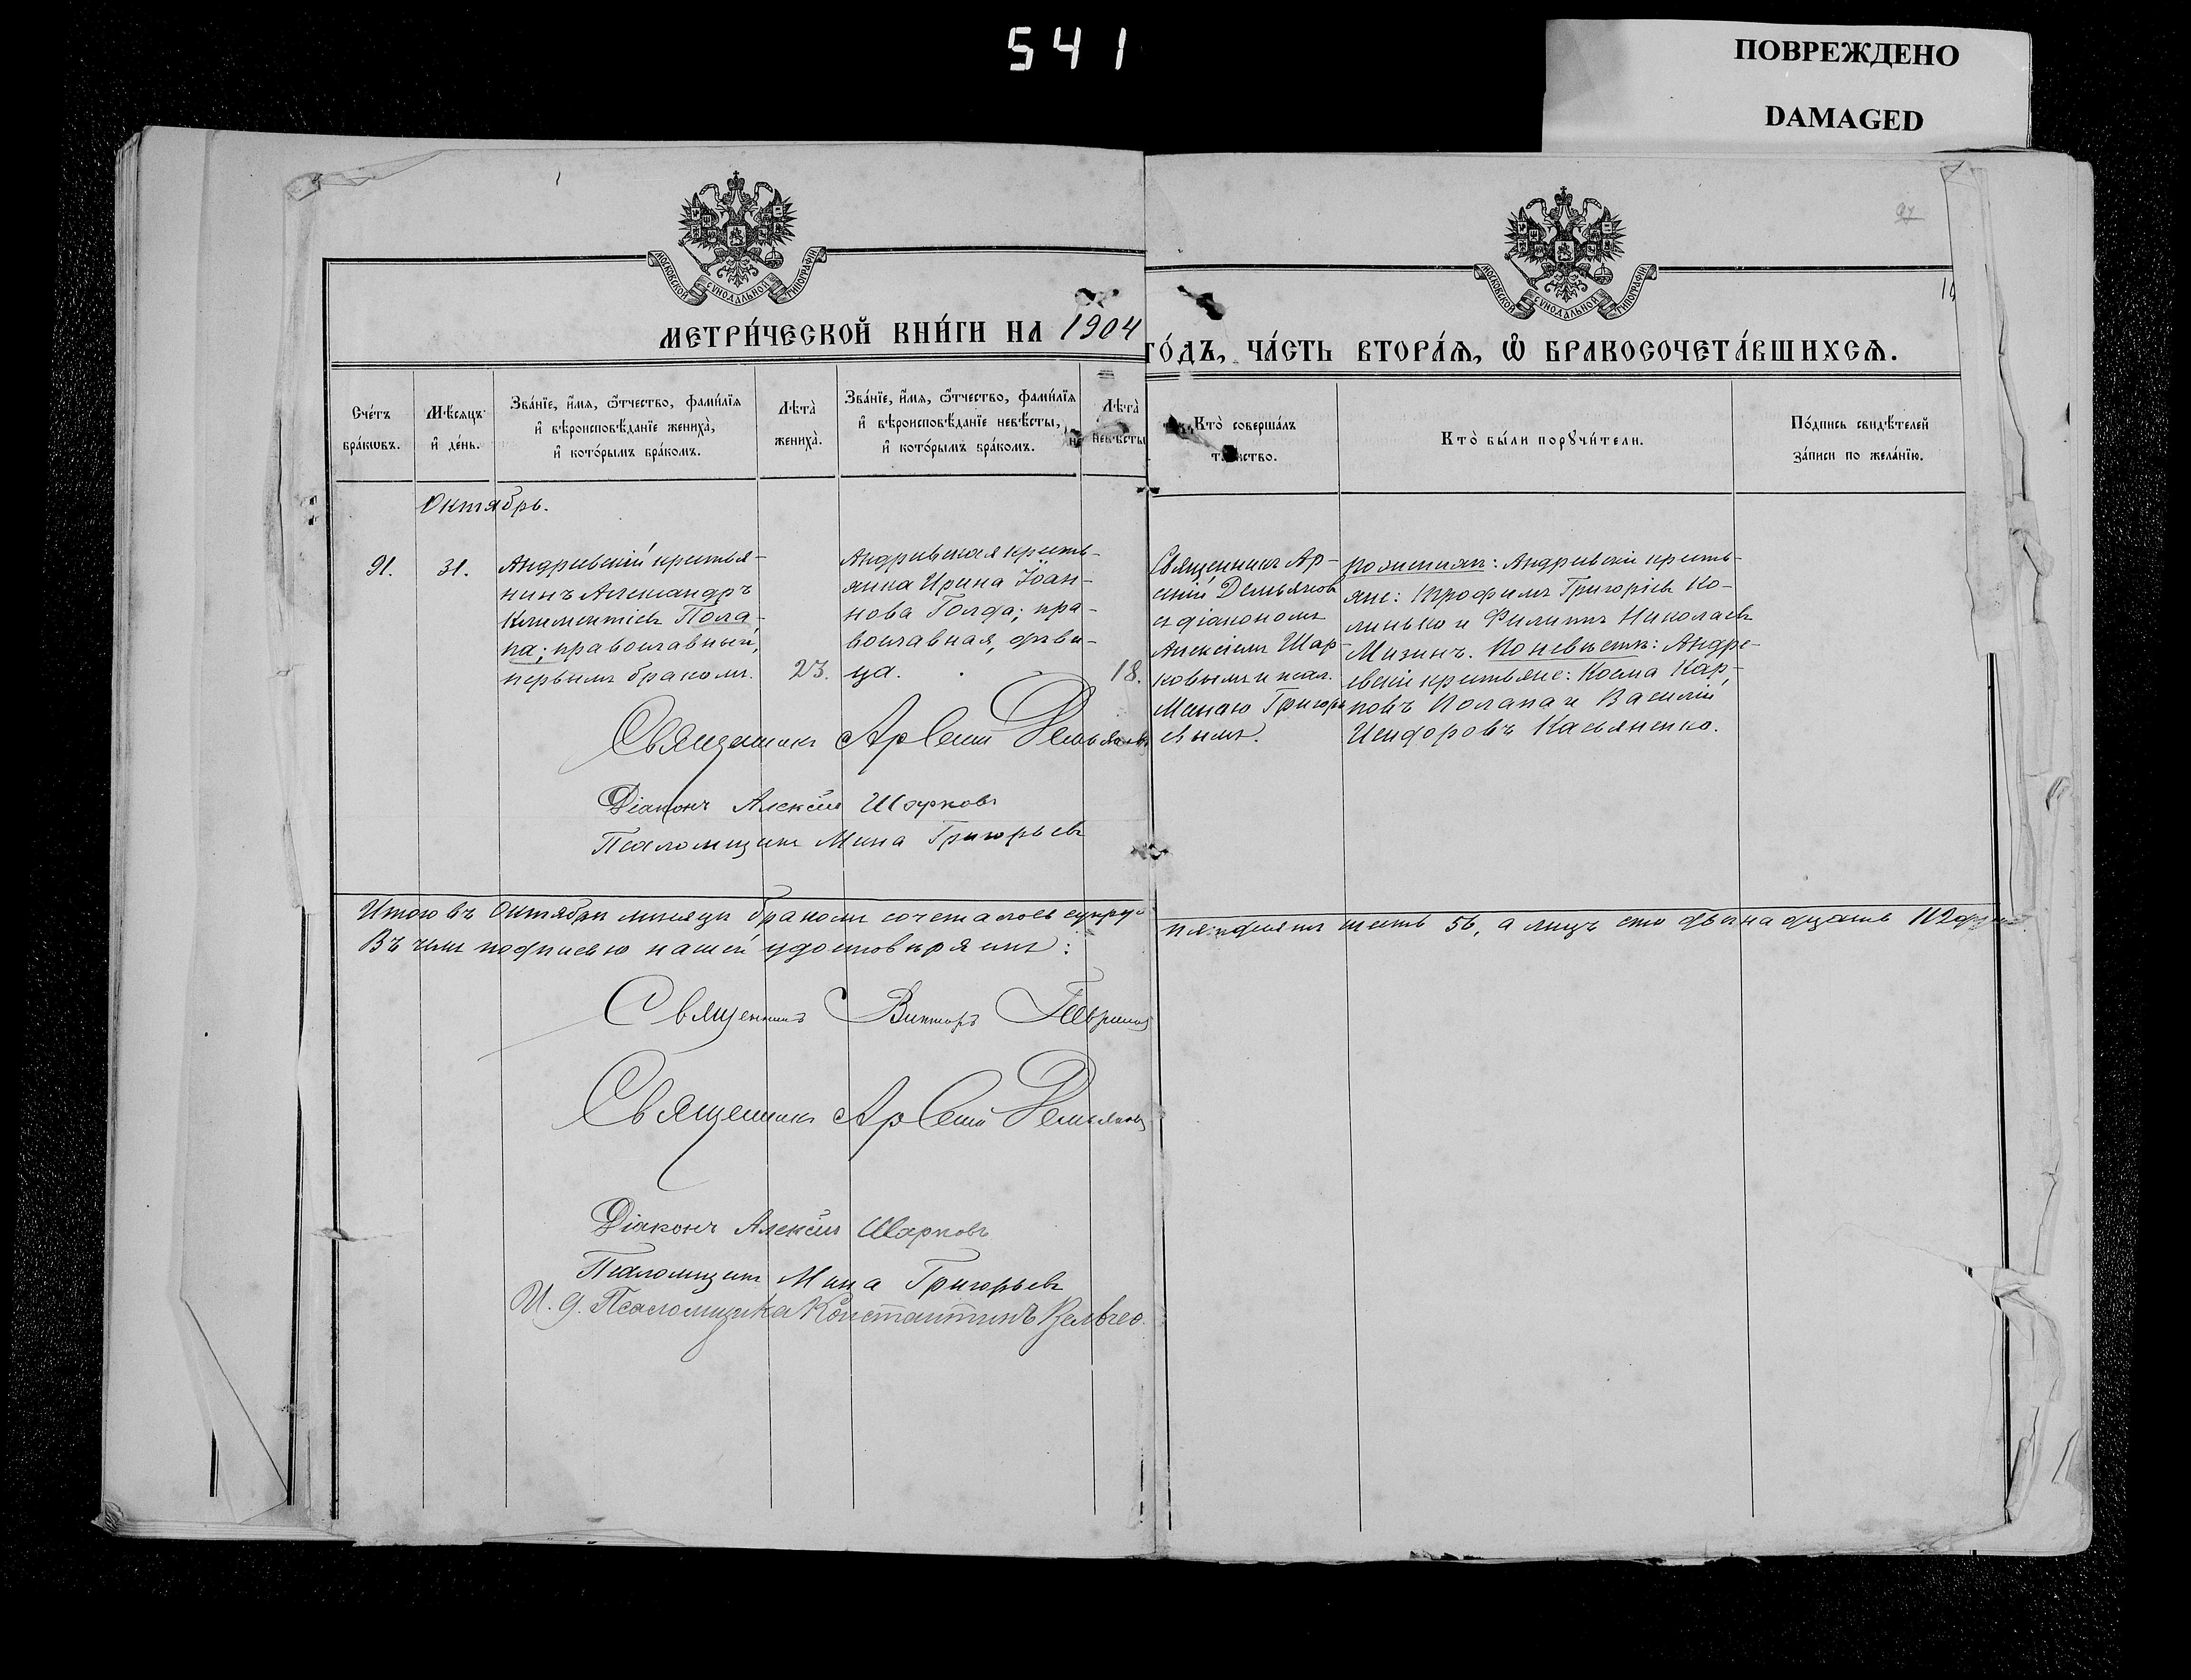 541
ПОВРЕЖДЕНО
DAMAGED
97
МОСКОВСКОЙ СѴНОДАЛЬНОЙ ТИПОГРАФІИ
МОСКОВСКОЙ СѴНОДАЛЬНОЙ ТИПОГРАФІИ
МЕТРИ́ЧЕСКОЙ КНИ́ГИ НА 1904
ГО́ДЪ, ЧА́СТЬ ВТОРА́Ѧ, Ѽ БРАКОСОЧЕТА́ВШИХСѦ.
Сче́тъ
бра́кѡвъ.
Мѣ́сяцъ
и҆ де́нь.
Зва́нїе, и҆́мя, ѻ҆́тчество, фами́лїя
и҆ вѣроисповѣ́данїе жениха̀,
и҆ кото́рымъ бра́комъ.
Лѣта̀
жениха̀.
Зва́нїе, и҆́мя, ѻ҆́тчество, фами́лїя
и҆ вѣроисповѣ́данїе невѣ́сты,
и҆ кото́рымъ бра́комъ.
Лѣта̀
невѣ́сты
Кто̀ соверша́лъ
таинство.
Кто̀ бы́ли порꙋчи́тели.
По́дпись свидѣ́телей
за́писи по жела́нїю.
Октябрь.
91.
31.
Андреевскій крестья-
нинъ Александръ
Климентіевъ Пола-
па; православный,
первымъ бракомъ.
23.
Андреевская кресть-
янка Ирина Іоан-
нова Голда; пра-
вославная, дѣви-
ца.
18.
Священникъ Ар-
сеній Демьяновъ
съ діакономъ
Алексіемъ Шар-
ковымъ и псал.
Миною Григорь
евымъ.
По женихѣ: Андреевскіе кресть-
яне: Трофимъ Григоріевъ Ко-
линько и Филиппъ Николаевъ
Мизинъ. По невѣстѣ: Андре-
евскіе крестьяне: Косма Кар-
повъ Полапа и Василій
Исидоровъ Касьяненко.
Священникъ Арсеній Демьяновъ
Діаконъ Алексій Шарковъ
Псаломщикъ Мина Григорьевъ
Итого въ Октябрѣ мѣсяцѣ бракомъ сочеталось супру-
жествъ пятьдесятъ шесть 56, а лицъ сто двѣнадцать 112
Въ чемъ подписью нашей удостовѣряемъ:
Священникъ Викторъ Гавриловъ
Священникъ Арсеній Демьяновъ
Діаконъ Алексій Шарковъ
Псаломщикъ Мина Григорьевъ
И. д. Псаломщика Константинъ